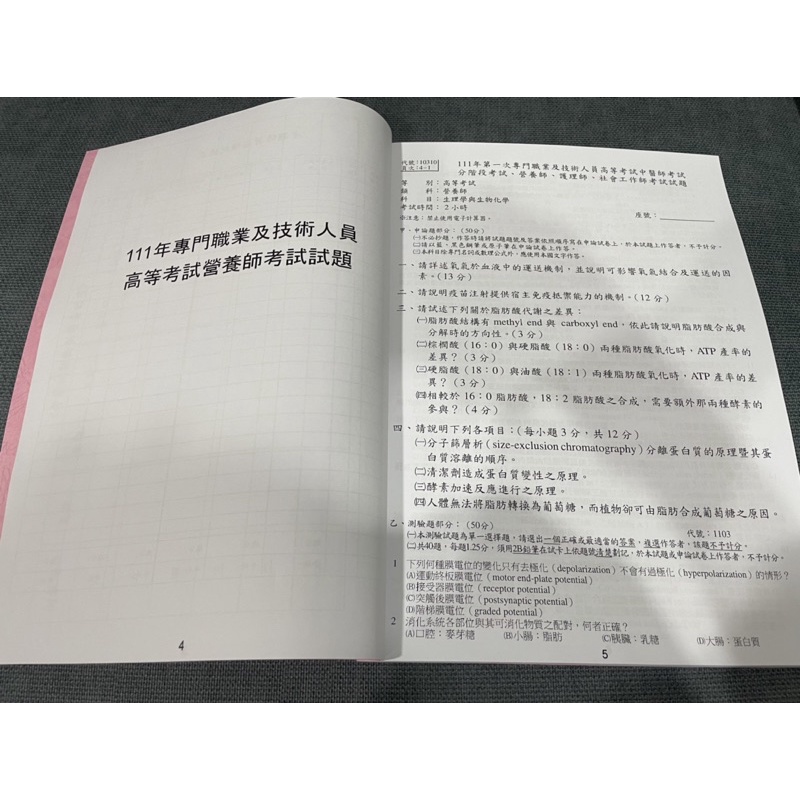 111年專門職業及技術人員
高等考試營養師考試試題
4
代號：10310
頁次：4-1
111年第一次專門職業及技術人員高等考試中醫師考試
分階段考試、營養師、護理師、社會工作師考試試題
等 別：高等考試
類 科：營養師
科 目：生理學與生物化學
考試時間：2小時
座號：
※注意：禁止使用電子計算器。
甲、申論題部分：（50分）
㈠不必抄題，作答時請將試題題號及答案依照順序寫在申論試卷上，於本試題上作答者，不予計分。
㈡請以藍、黑色鋼筆或原子筆在申論試卷上作答。
㈢本科目除專門名詞或數理公式外，應使用本國文字作答。
一、請詳述氧氣於血液中的運送機制，並說明可影響氧氣結合及運送的因
素。（13分）
二、請說明疫苗注射提供宿主免疫抵禦能力的機制。（12分）
三、請試述下列關於脂肪酸代謝之差異：
㈠脂肪酸結構有 methyl end 與 carboxyl end，依此請說明脂肪酸合成與
分解時的方向性。（3分）
㈡棕櫚酸（16：0）與硬脂酸（18：0）兩種脂肪酸氧化時，ATP 產率的
差異？（3分）
㈢硬脂酸（18：0）與油酸（18：1）兩種脂肪酸氧化時，ATP 產率的差
異？（3分）
㈣相較於 16：0 脂肪酸，18：2 脂肪酸之合成，需要額外那兩種酵素的
參與？（4分）
四、請說明下列各項目：（每小題3分，共12分）
㈠分子篩層析（size-exclusion chromatography）分離蛋白質的原理暨其蛋
白質溶離的順序。
㈡清潔劑造成蛋白質變性之原理。
㈢酵素加速反應進行之原理。
㈣人體無法將脂肪轉換為葡萄糖，而植物卻可由脂肪合成葡萄糖之原因。
乙、測驗題部分：（50分）
代號：1103
㈠本測驗試題為單一選擇題，請選出一個正確或最適當的答案，複選作答者，該題不予計分。
㈡共40題，每題1.25分，須用2B鉛筆在試卡上依題號清楚劃記，於本試題或申論試卷上作答者，不予計分。
1 下列何種膜電位的變化只有去極化（depolarization）不會有過極化（hyperpolarization）的情形？
(A)運動終板膜電位（motor end-plate potential）
(B)接受器膜電位（receptor potential）
(C)突觸後膜電位（postsynaptic potential）
(D)階梯膜電位（graded potential）
2 消化系統各部位與其可消化物質之配對，何者正確？
(A)口腔：麥芽糖 (B)小腸：脂肪 (C)胰臟：乳糖 (D)大腸：蛋白質
5